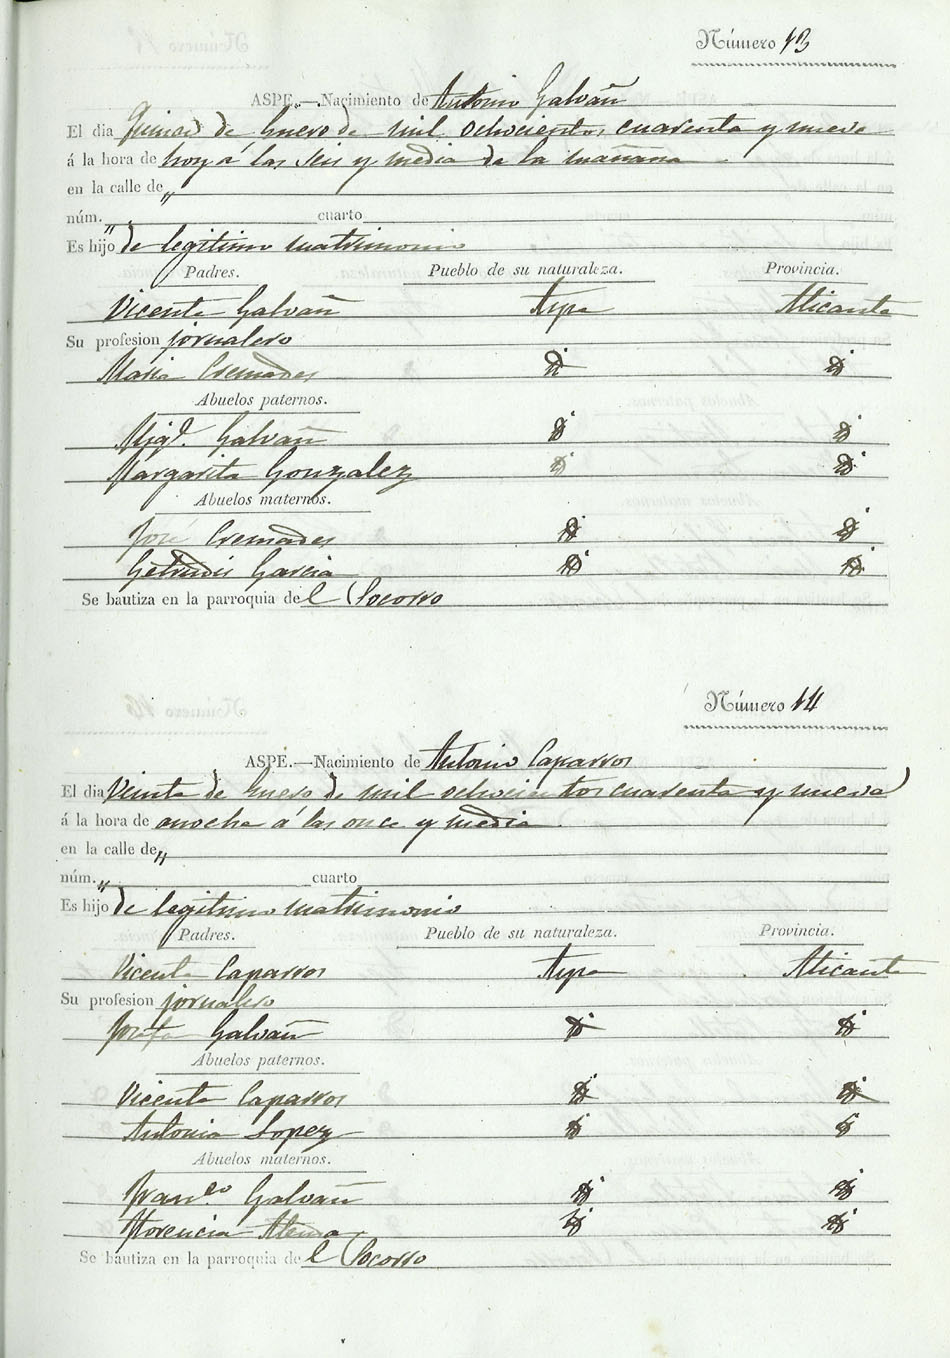 Número 13
ASPE.—Nacimiento de Antonio Galvañ
El dia Quince de Enero de mil ochocientos cuarenta y nueve
á la hora de hoy á las seis y media de la mañana
en la calle de "
núm. " cuarto
Es hijo de legitimo matrimonio
Padres. Pueblo de su naturaleza. Provincia.
Vicente Galvañ Aspe Alicante
Su profesion jornalero
Maria Cremades id id
Abuelos paternos.
Migl. Galvañ id id
Margarita Gonzalez id id
Abuelos maternos.
José Cremades id id
Getrudis Garcia id id
Se bautiza en la parroquia de l Socorro
Número 14
ASPE.—Nacimiento de Antonio Caparros
El dia Veinte de Enero de mil ochocientos cuarenta y nueve
á la hora de anoche á las once y media
en la calle de "
núm. " cuarto
Es hijo de legitimo matrimonio
Padres. Pueblo de su naturaleza. Provincia.
Vicente Caparros Aspe Alicante
Su profesion jornalero
Josefa Galvañ id id
Abuelos paternos.
Vicente Caparros id id
Antonia Lopez id id
Abuelos maternos.
Franco Galvañ id id
Florencia id id
Se bautiza en la parroquia de l Socorro